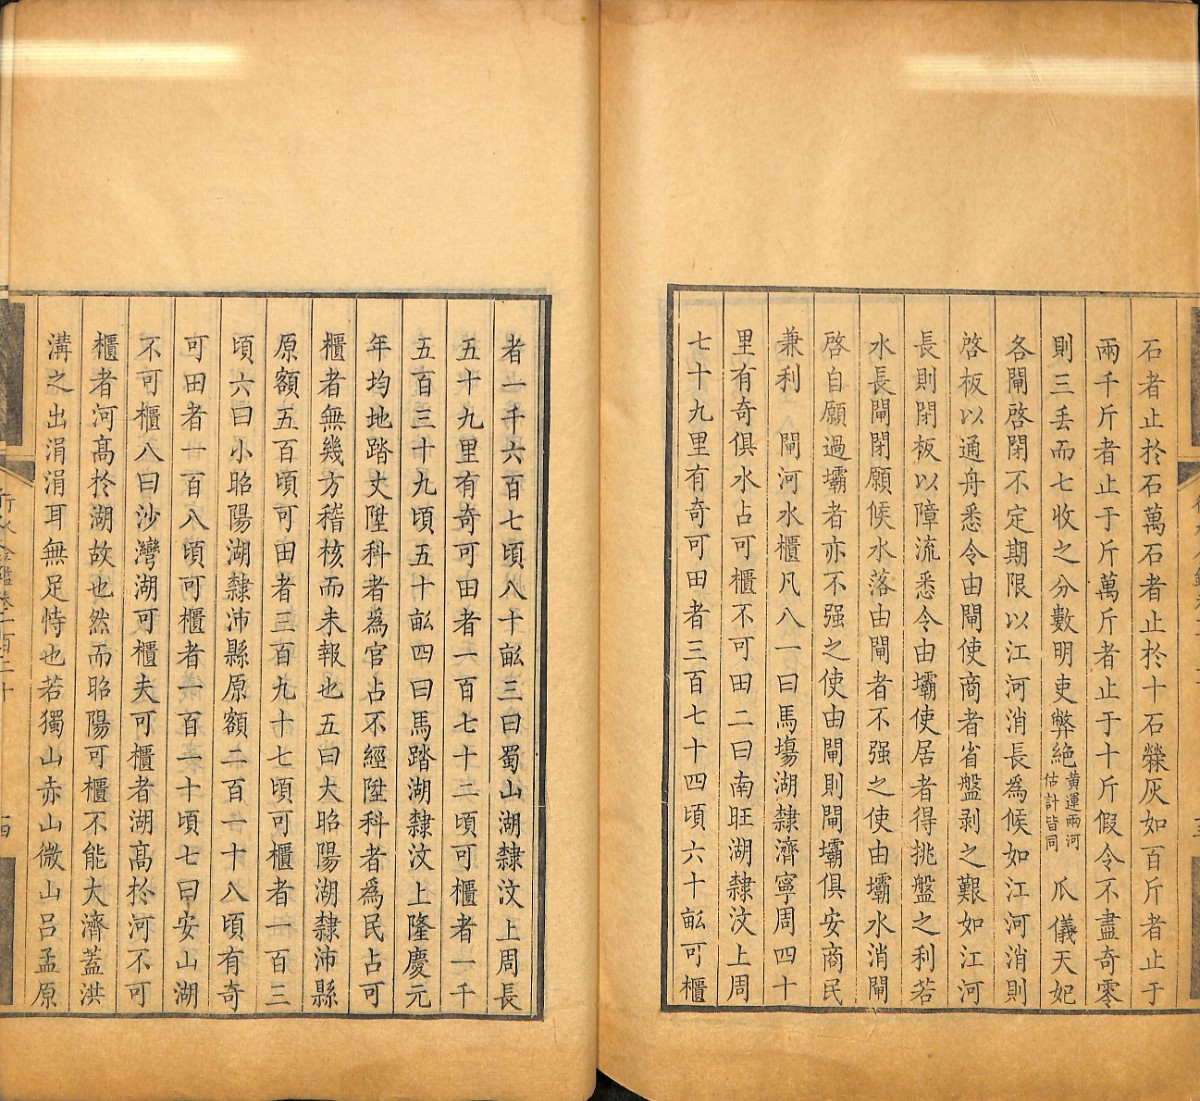 石者止於石萬石者止於十石檾灰如百斤者止于
兩千斤者止于斤萬斤者止于十斤假令不盡奇零
則三丢而七收之分數明吏弊絶黄運兩河估計皆同　瓜儀天妃
各閘啓閉不定期限以江河消長為候如江河消則
啓板以通舟悉令由閘使商者省盤剥之艱如江河
長則閉板以障流悉令由壩使居者得挑盤之利若
水長閘閉願候水落由閘者不强之使由壩水消閘
啓自願過壩者亦不强之使由閘則閘壩俱安商民
兼利　閘河水櫃凡八一曰馬塲湖隸濟寧周四十
里有奇俱水占可櫃不可田二曰南旺湖隸汶上周
七十九里有奇可田者三百七十四頃六十畝可櫃
者一千六百七頃八十畝三曰蜀山湖隸汶上周長
五十九里有奇可田者一百七十二頃可櫃者一千
五百三十九頃五十畝四曰馬踏湖隸汶上隆慶元
年均地踏丈陞科者為官占不經陞科者為民占可
櫃者無幾方稽核而未報也五曰大昭陽湖隸沛縣
原額五百頃可田者三百九十七頃可櫃者一百三
頃六曰小昭陽湖隸沛縣原額二百一十八頃有奇
可田者一百八頃可櫃者一百一十頃七曰安山湖
不可櫃八曰沙灣湖可櫃夫可櫃者湖高於河不可
櫃者河高於湖故也然而昭陽可櫃不能大濟蓋洪
溝之出涓涓耳無足恃也若獨山赤山微山呂孟原
行水金鑑卷一百二十